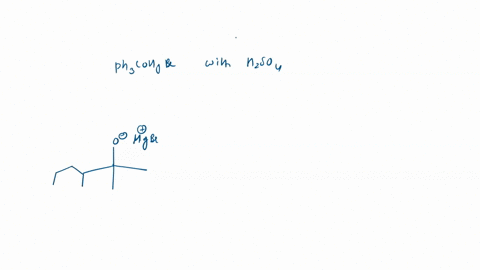 ph3COMgBr with H2SO4
O⊖ ⊕MgBr